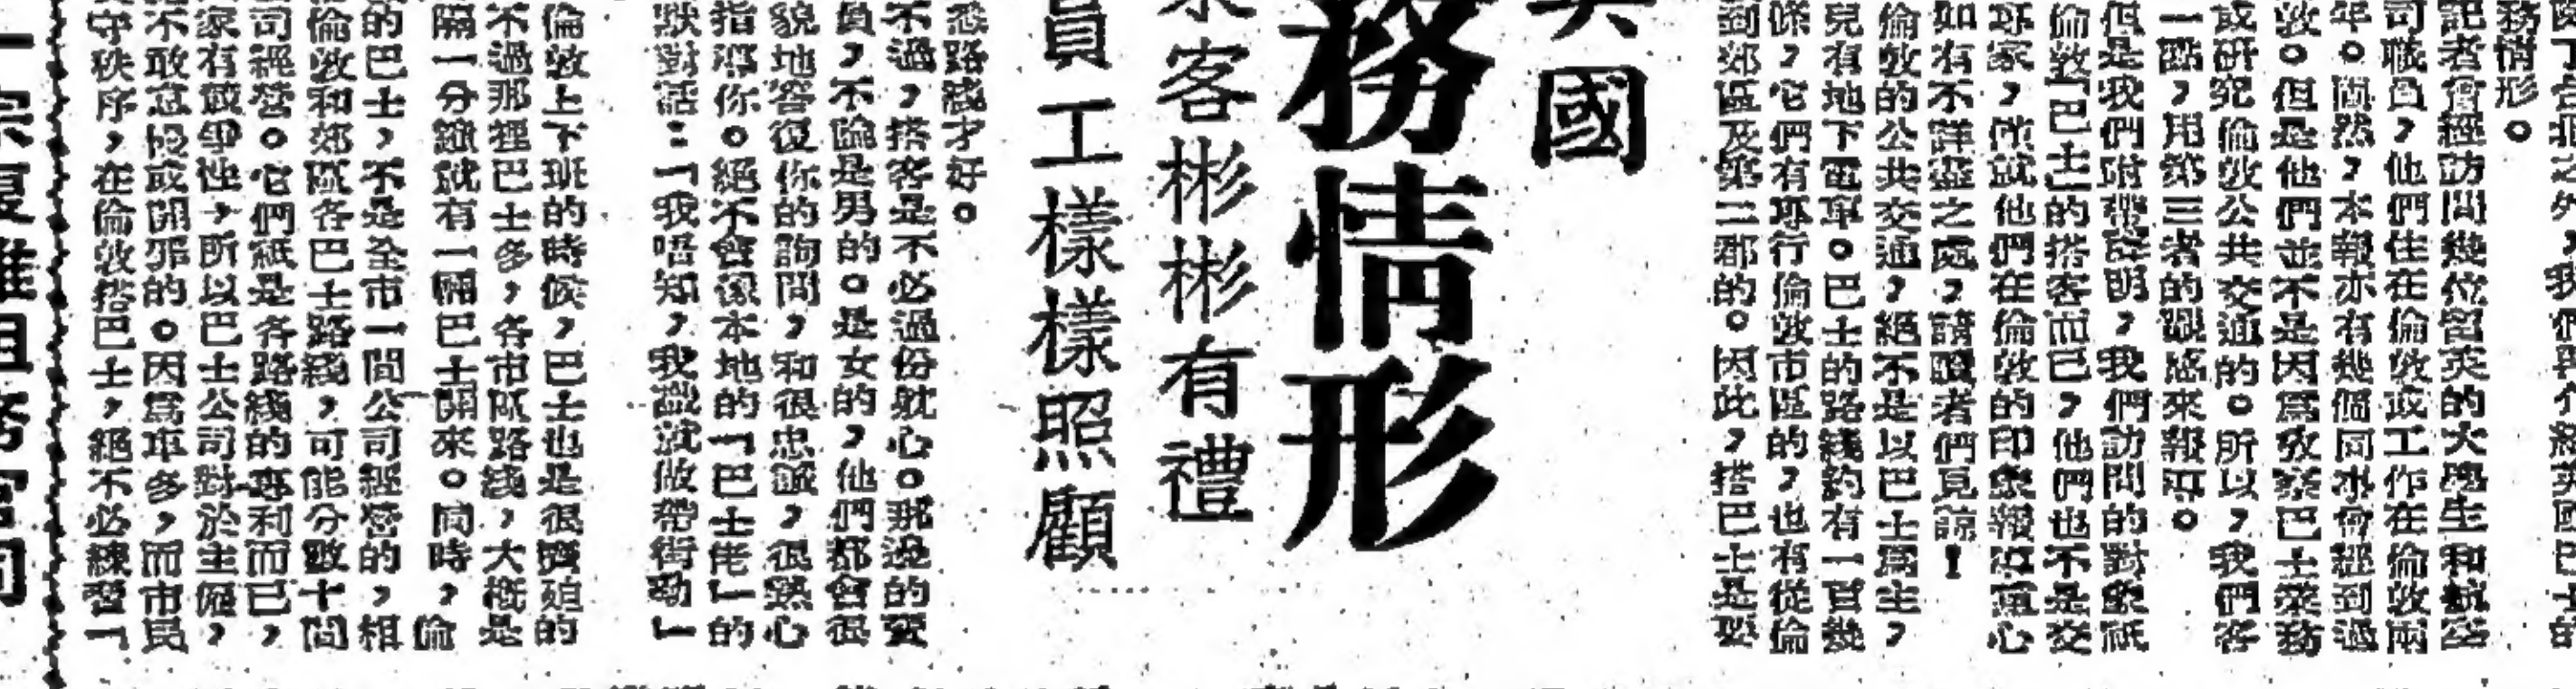 務情形。
記者會經訪問幾位留英的大學生和航空
司職員，他們住在倫敦或工作在倫敦兩
年。固然，本報亦有幾個同事會經到過
敦。但是他們並不是因爲攷察巴士業務
或研究倫敦公共交通的。所以，我們客
一點，用第三者的觀感來報導。
但是我們附帶聲明，我們訪問的對象祇
倫敦「巴士」的搭客而已，他們也不是交
專家，所說他們在倫敦的印象報導重心
如有不詳盡之處，請讀者們見諒！
倫敦的公共交通，絕不是以巴士爲主，
兒有地下電車。巴士的路綫約有一百幾
條，它們有專行倫敦市區的，也有從倫
到郊區及第二郡的。因此，搭巴士是要
英國
務情形
乘客彬彬有禮
員工樣樣照顧
悉路綫才好。
不過，搭客是不必過份躭心。那邊的賣
員，不論是男的。是女的，他們都會很
貌地答復你的詢問，和很忠誠，很熱心
指導你。絕不會像本地的「巴士佬」的
默對話：「我唔知，我識就做帶街喇」
倫敦上下班的時候，巴士也是很擠廹的
不過那裡巴士多，各市區路綫，大概是
隔一分鐘就有一輛巴士開來。同時，倫
的巴士，不是全市一間公司經營的，相
倫敦和郊區各巴士路綫，可能分數十間
司經營。它們祇是各路綫的專利而已，
家有競爭性，所以巴士公司對於主僱，
不敢怠慢或開罪的。因爲車多，而市民
守秩序，在倫敦搭巴士，絕不必練習「